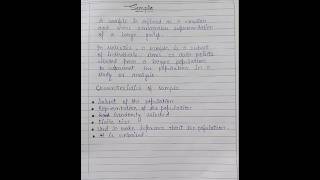 Sample
A sample is defined as a smaller
and more manageable representation
of a large group
In statistics, a sample is a subset
of individuals, items or data points
selected from a larger population
to represent the population in a
study or analysis
Characteristics of sample
Subset of the population
Representative of the population
Randomly selected
Finite size
Used to make inference about the population.
It is unbiased